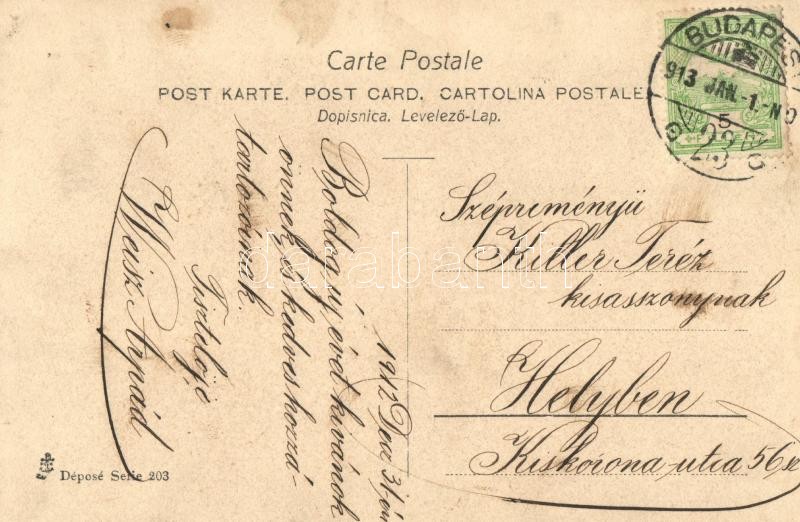 Carte Postale
POST KARTE. POST CARD. CARTOLINA POSTALE
Dopisnica. Levelező-Lap.
BUDAPEST
913 JAN.-1.-N
5
23
1912 Dec 31-én
Boldog új évet kivánok
önnek és kedves hozzá-
tartozóinak.
Tisztelője
Weisz Árpád
Szépreményű
Killer Teréz
kisasszonynak
Helyben
Kiskorona-utca 56 sz
Déposé Serie 203
darabanth